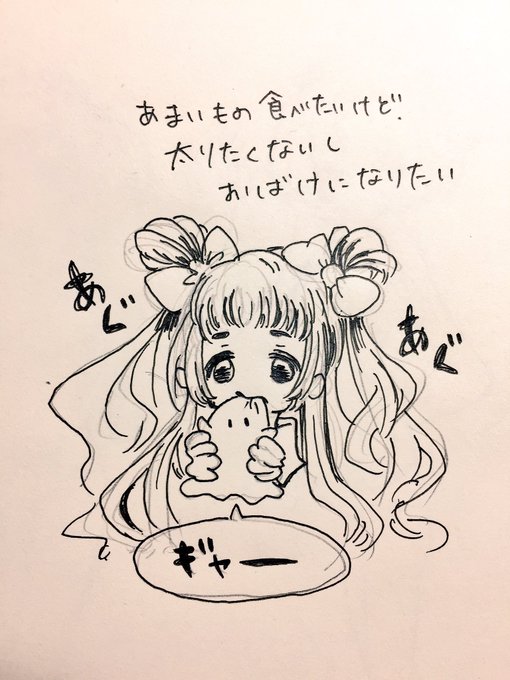 あまいもの食べたいけど
太りたくないし
おばけになりたい
あぐ
あぐ
ギャー